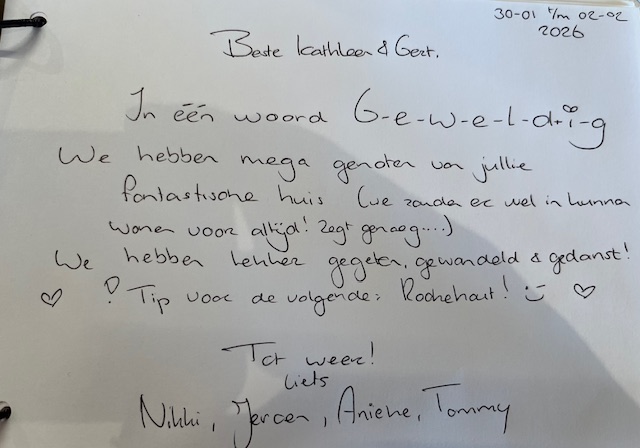 30-01 t/m 02-02
2026
Beste Kathleen & Gert,
In één woord G-e-w-e-l-d-i-g
We hebben mega genoten van jullie
fantastische huis (we zouden er wel in kunnen
wonen voor altijd! Zegt genoeg....)
We hebben lekker gegeten, gewandeld & gedanst!
♡ ! Tip voor de volgende: Rochehaut! :) ♡
Tot weer!
Liefs
Nikki, Jeroen, Anieke, Tommy